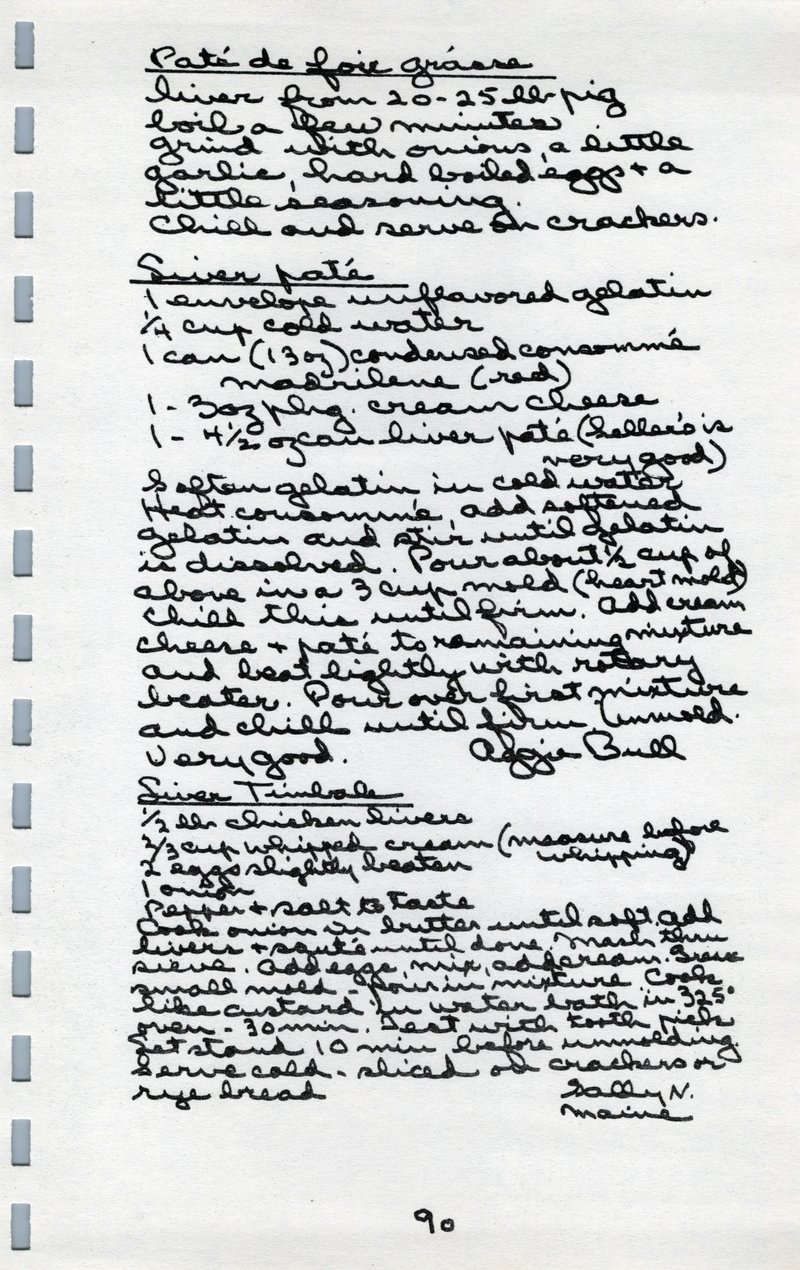 Paté de foie grásse
liver from 20-25 lb pig
boil a few minutes
grind with onions, a little
garlic, hard boiled eggs + a
little seasoning.
Chill and serve on crackers.
Liver paté
1 envelope unflavored gelatin
1/4 cup cold water
1 can (13 oz) condensed consommé
madrilene (red)
1 - 3 oz pkg. cream cheese
1 - 4 1/2 oz can liver paté (Sellers is
very good)
Soften gelatin in cold water
Heat consommé, add softened
gelatin and stir until gelatin
is dissolved. Pour about 1/2 cup of
above in a 3 cup mold (heart mold)
Chill this until firm. Add cream
cheese + paté to remaining mixture
and beat lightly with rotary
beater. Pour over first mixture
and chill until firm. Unmold.
Very good. Aggie Bull
Liver Timbale
1/2 lb chicken livers
2/3 cup whipped cream (measure before
whipping)
2 eggs slightly beaten
1 onion
Pepper + salt to taste
Cook onion in butter until soft. Add
livers + sauté until done. Mash thru
sieve. Add eggs, mix, add cream. Grease
small mold - pour in mixture. Cook
like custard in water bath in 325°
oven - 30 min. Test with tooth pick
Let stand 10 min before unmolding.
Serve cold - sliced on crackers or
rye bread
Sally N.
Maine
90